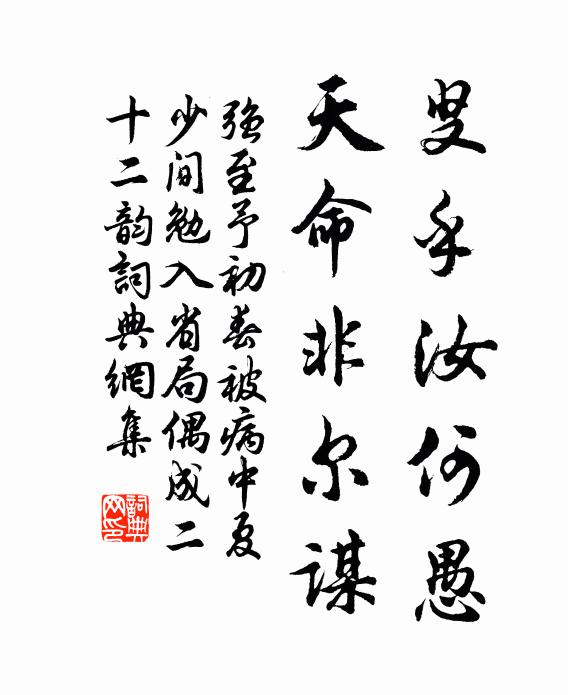 叟乎汝何愚
天命非尔谋
强至予初春被病中夏
少间勉入省局偶成二
十二韵詞典網集
詞典网印